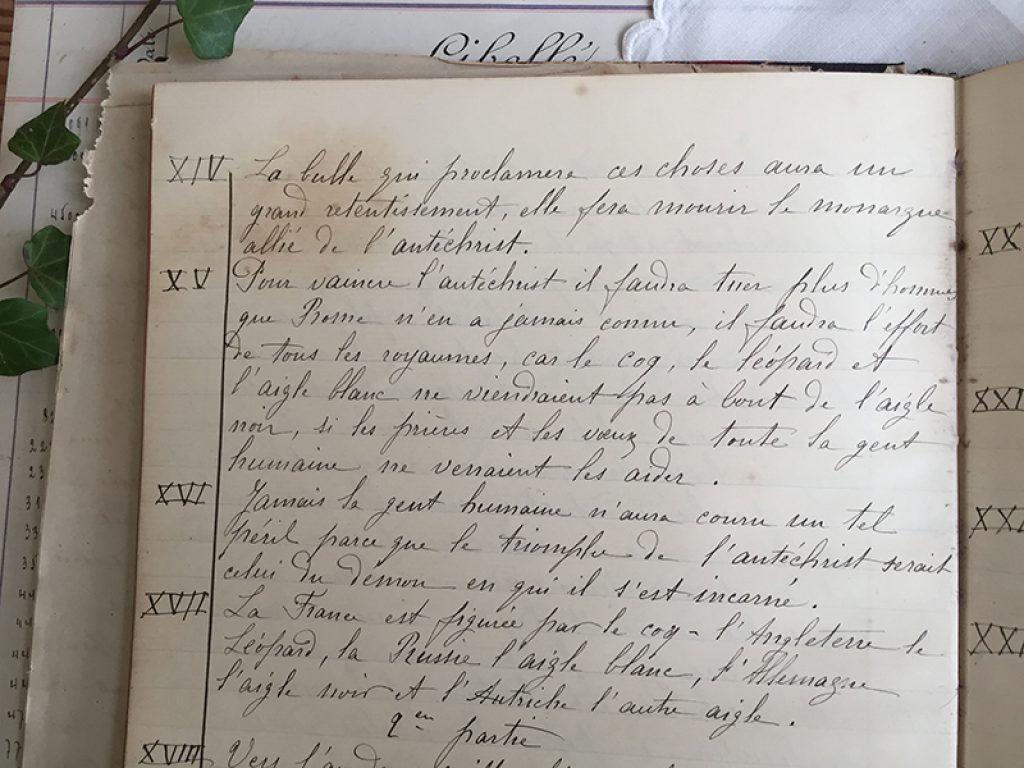 Libellé
XIV La bulle qui proclamera ces choses aura un
grand retentissement, elle fera mourir le monarque
allié de l'antéchrist.
XV Pour vaincre l'antéchrist il faudra tuer plus d'hommes
que Rome n'en a jamais connu, il faudra l'effort
de tous les royaumes, car le coq, le léopard et
l'aigle blanc ne viendraient pas à bout de l'aigle
noir, si les prières et les vœux de toute la gent
humaine ne venaient les aider.
XVI Jamais la gent humaine n'aura couru un tel
péril parce que le triomphe de l'antéchrist serait
celui du démon en qui il s'est incarné.
XVII La France est figurée par le coq - l'Angleterre le
Léopard, la Russie l'aigle blanc, l'Allemagne
l'aigle noir et l'Autriche l'autre aigle.
partie
XVIII Vers l'an
XX
XXI